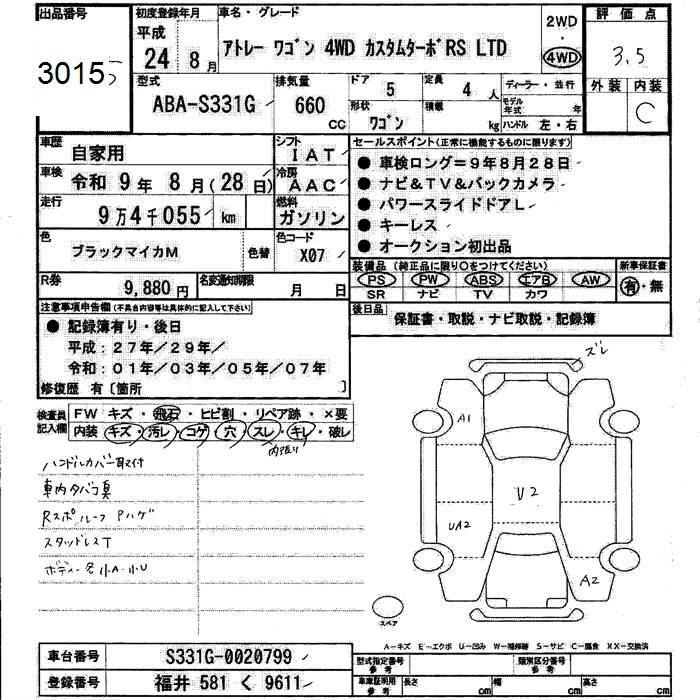 出品番号
30155
初度登録年月
平成
24 8月
車名・グレード
アトレー ワゴン 4WD カスタムターボRS LTD
2WD
・
4WD
評価点
3.5
外装 内装
C
型式
ABA-S331G
排気量
660
CC
ドア 5
定員 4 人
形状 ワゴン
積載 kg
ディーラー・並行
モデル年式 年
ハンドル 左・右
車歴
自家用
シフト
IAT
車検
令和 9年 8月(28日)
冷房
AAC
走行
9万4千055 km
燃料
ガソリン
色
ブラックマイカM
色替
色コード
X07
R券
9,880円
名変通知期限
月 日
セールスポイント(正常に機能するものに限ります)
● 車検ロング=9年8月28日
● ナビ&TV&バックカメラ
● パワースライドドアL
● キーレス
● オークション初出品
装備品(純正品に限り○をつけてください)
PS PW ABS エアB AW
SR ナビ TV カワ
新車保証書
有・無
後日品
保証書・取説・ナビ取説・記録簿
注意事項申告欄(不具合内容等は具体的に記入して下さい)
● 記録簿有り・後日
平成:27年/29年/
令和:01年/03年/05年/07年
修復歴 有〔箇所 〕
検査員記入欄
FW キズ・飛石・ヒビ割・リペア跡・×要
内装 キズ・汚レ・コゲ・穴・スレ・キレ・破レ
内張り
ハンドルカバー取付
車内タバコ臭
Rスポ ルーフ Pハゲ
スタッドレスT
ボディー各小A・小U
ズレ
A1
U2
UA2
A2
スペア
A-キズ E-エクボ U-凹み W-補修跡 S-サビ C-腐食 XX-交換済
車台番号
S331G-0020799
登録番号
福井 581 く 9611
型式指定番号
参考
類別区分番号
参考
車庫証明用
参考
長さ cm
幅 cm
高さ cm